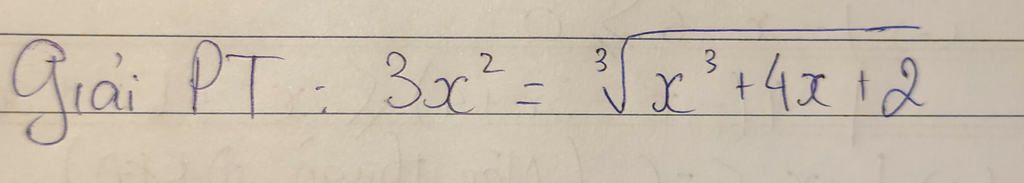 Giải PT : 3x² = ∛(x³ + 4x + 2)